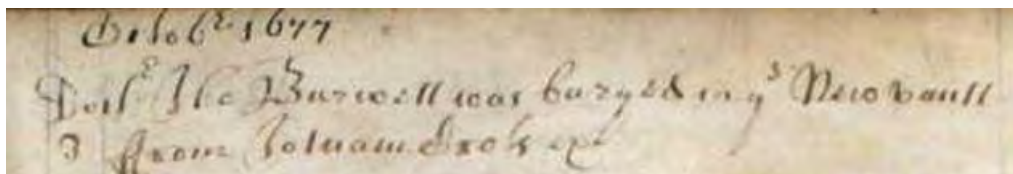 Octobr 1677
Doctr Tho Burwell was buryed in ye New vault
3 from Totnam